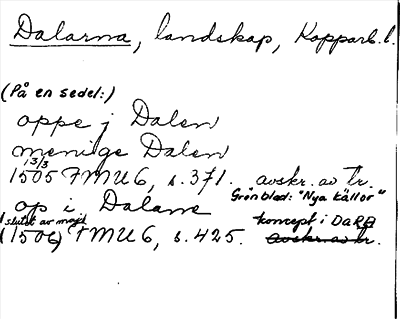 Dalarna, landskap, Kopparb. l.
(På en sedel:)
oppe j Dalen
menige Dalen
13/3
1505 FMU 6, s. 371. avskr. av tr.
Grönblad: "Nya källor"
op i Dalane
(slutet av maj koncept i DaRA
(1506) FMU 6, s. 425. avskr. av tr.